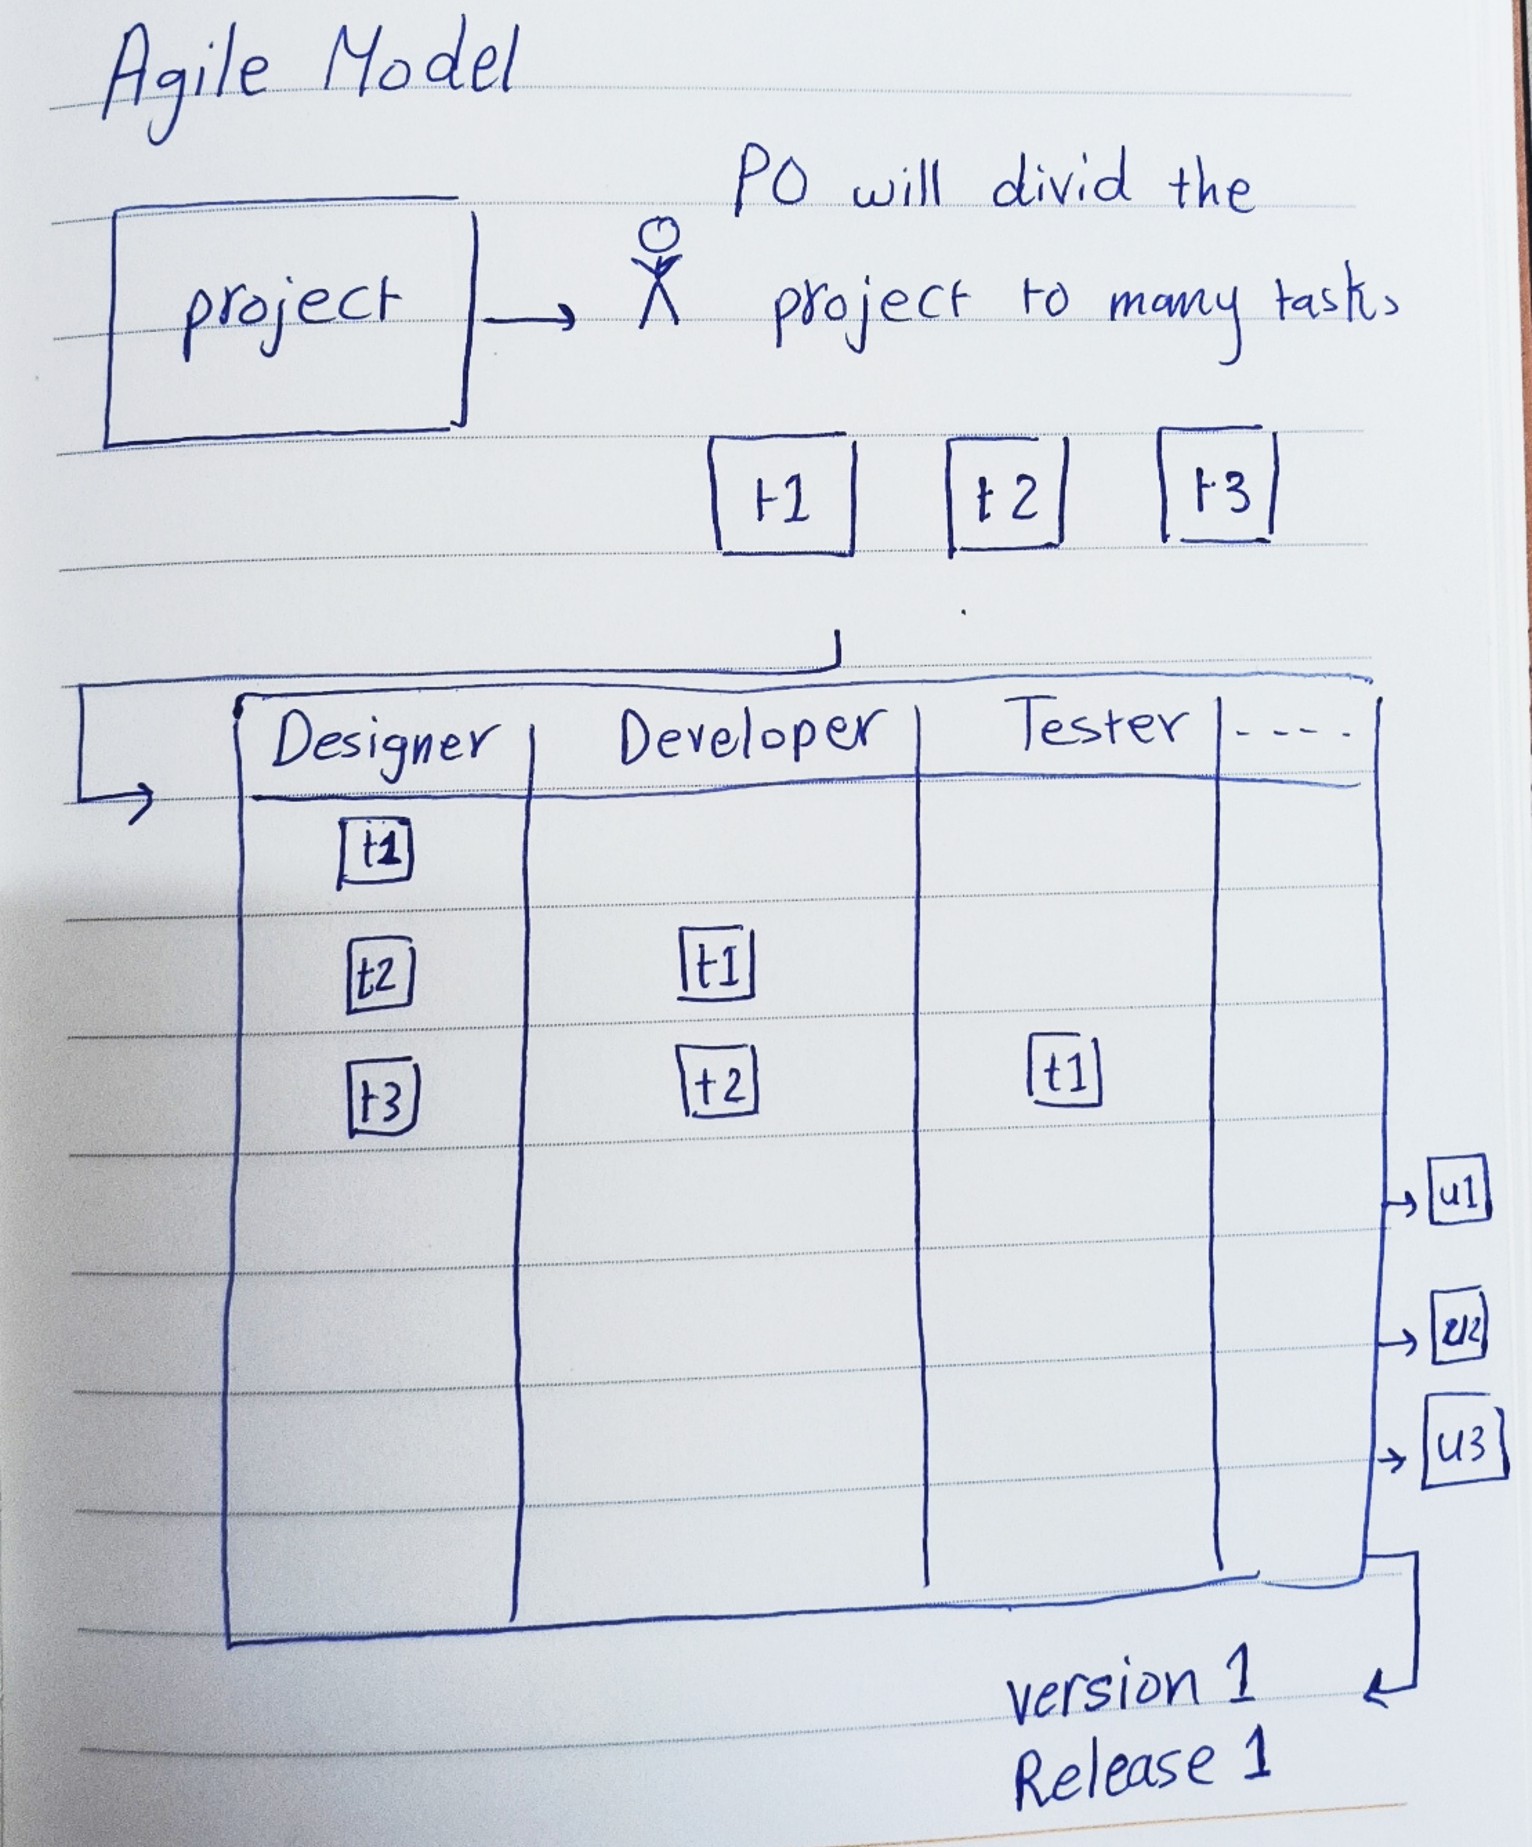 Agile Model
PO will divid the
project
project to many tasks
t1 t2 t3
Designer Developer Tester ----
t1
t2 t1
t3 t2 t1
u1
u2
u3
version 1
Release 1